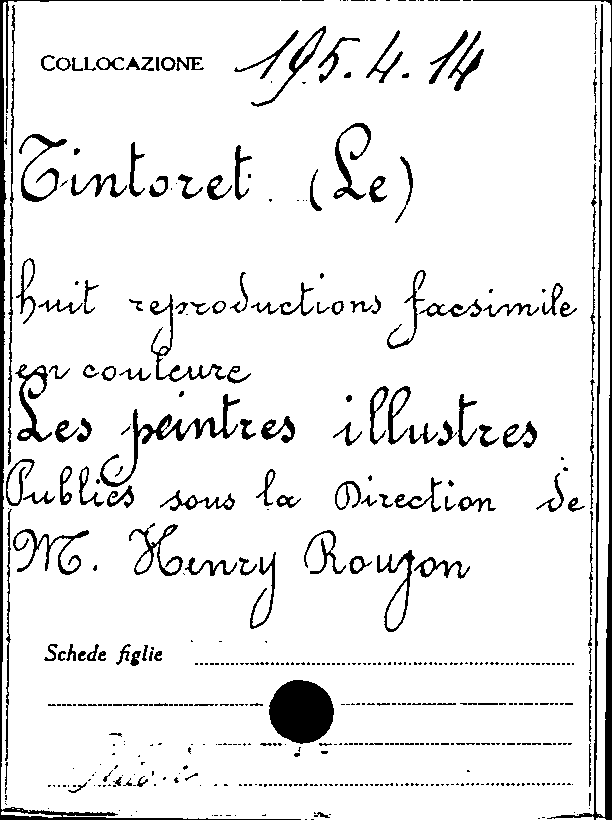 COLLOCAZIONE 195.4.14
Tintoret (Le)
huit reproductions facsimile
en couleure
Les peintres illustres
Publiés sous la Direction de
M. Henry Roujon
Schede figlie